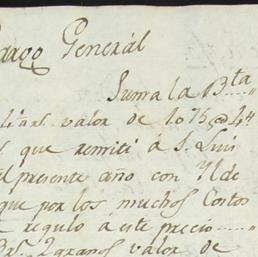 Cargo General
Suma la Bta
valor de 1075 @ 4
que remiti á S. Luis
el presente año con Ilde
que por los muchos Costos
regulo á este precio
2 granos valor de